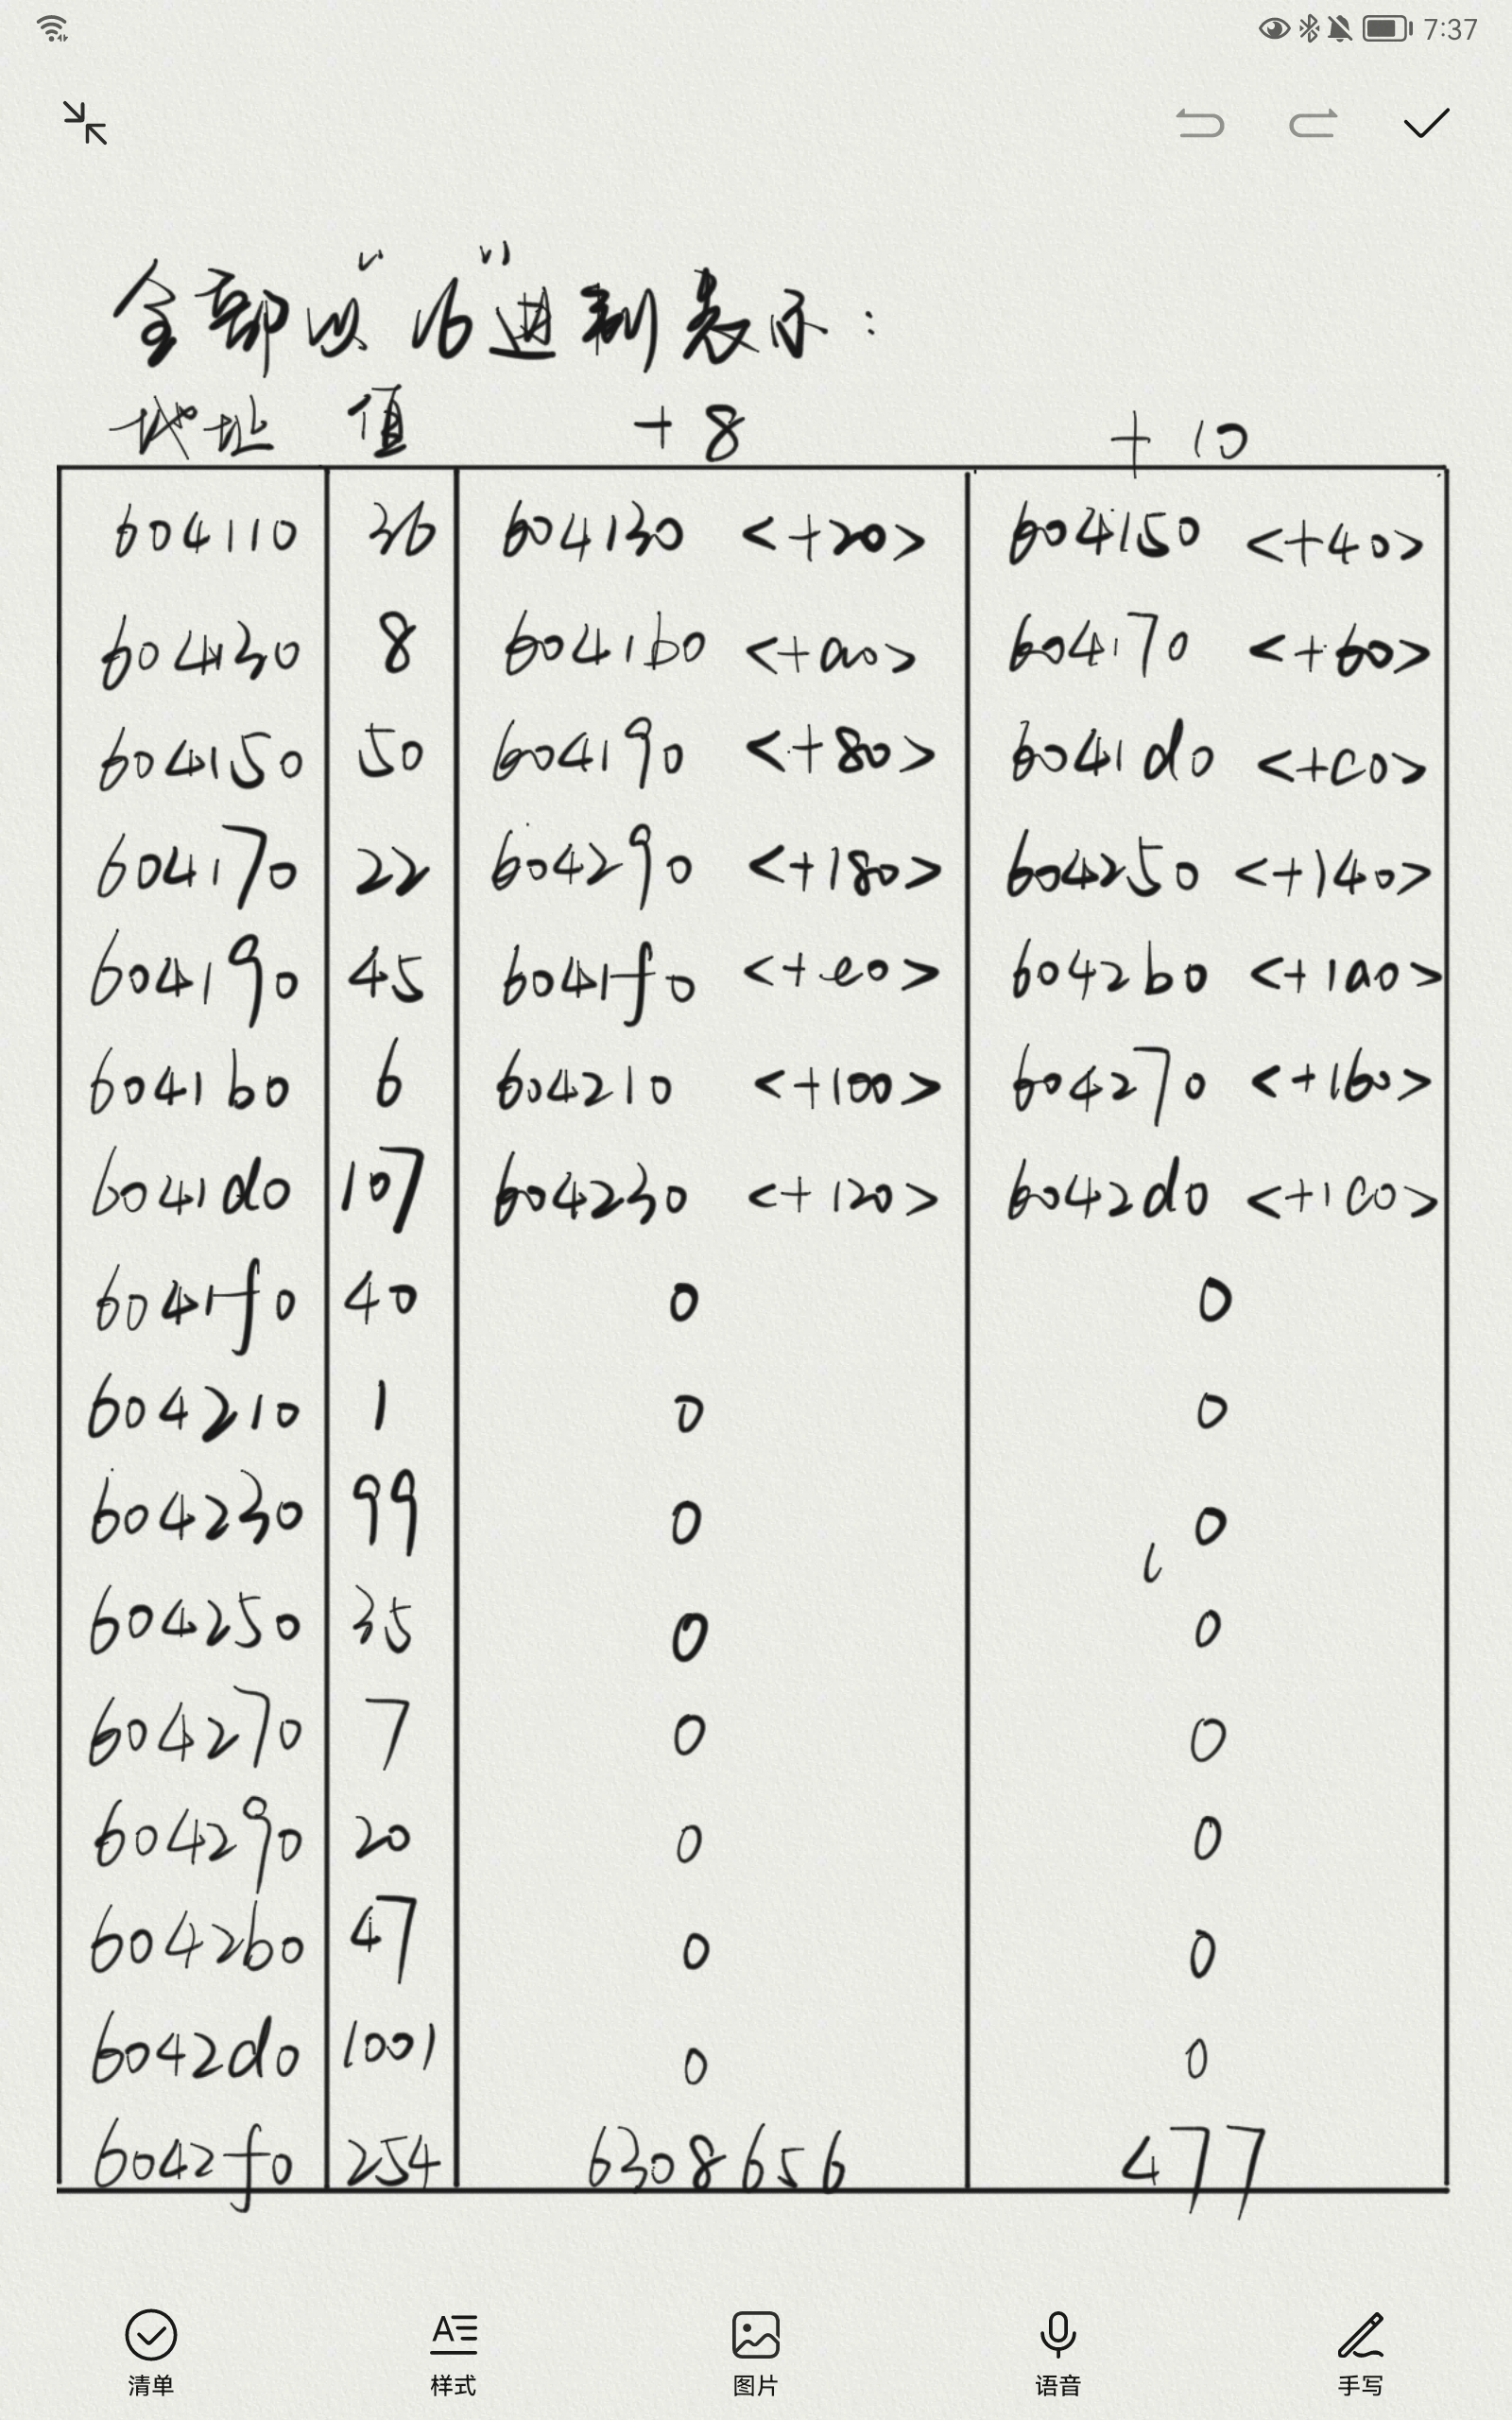 7:37
全部以16进制表示：
地址 值 +8 +10
604110 36 604130 <+20> 604150 <+40>
604130 8 6041b0 <+a0> 604170 <+60>
604150 50 604190 <+80> 6041d0 <+c0>
604170 22 604290 <+180> 604250 <+140>
604190 45 6041f0 <+e0> 6042b0 <+1a0>
6041b0 6 604210 <+100> 604270 <+160>
6041d0 107 604230 <+120> 6042d0 <+1c0>
6041f0 40 0 0
604210 1 0 0
604230 99 0 0
604250 35 0 0
604270 7 0 0
604290 20 0 0
6042b0 47 0 0
6042d0 1001 0 0
6042f0 254 6308656 477
清单 样式 图片 语音 手写